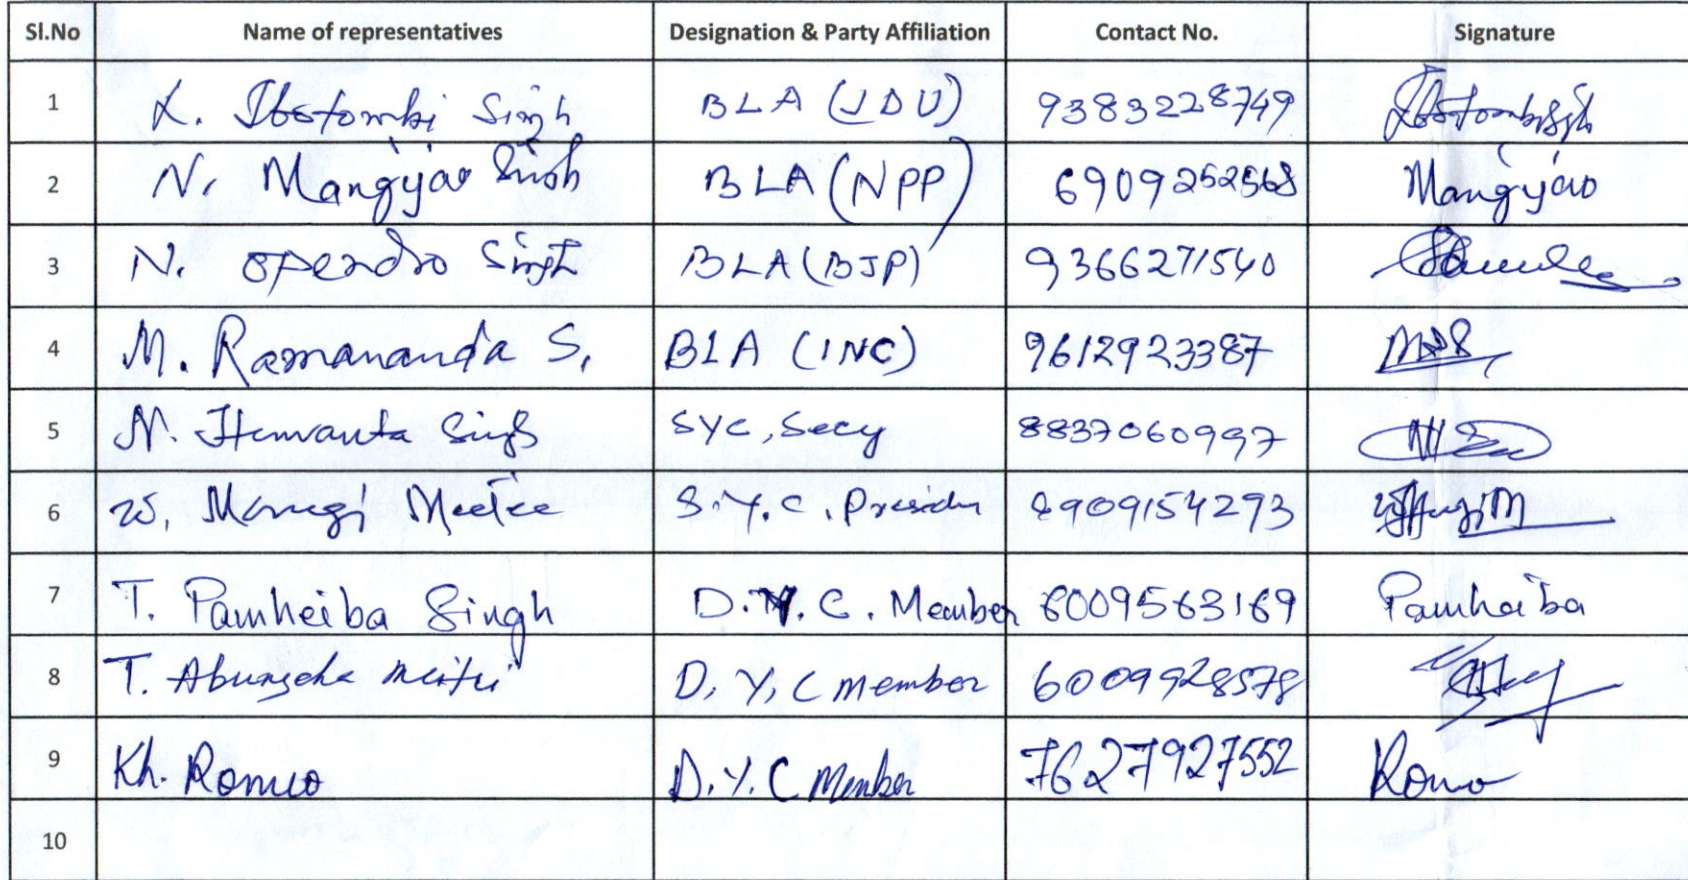 Sl.No Name of representatives Designation & Party Affiliation Contact No. Signature
1 L. Ibotombi Singh BLA (JDU) 9383228749 Ibotombi Singh
2 N. Mangijao Singh BLA (NPP) 6909252568 Mangijao
3 N. Opendro Singh BLA (BJP) 9366271540
4 M. Ramananda S. BLA (INC) 9612923387
5 N. Hemanta Singh SYC, Secy 8837060997
6 W. Mangi Meetee S.Y.C. 8909154293
7 T. Pamheiba Singh D.Y.C. Member 6009563169 Pamheiba
8 T. D, Y, C member 6009928578
9 Kh. Romeo D.Y.C Member 7627927552 Romeo
10